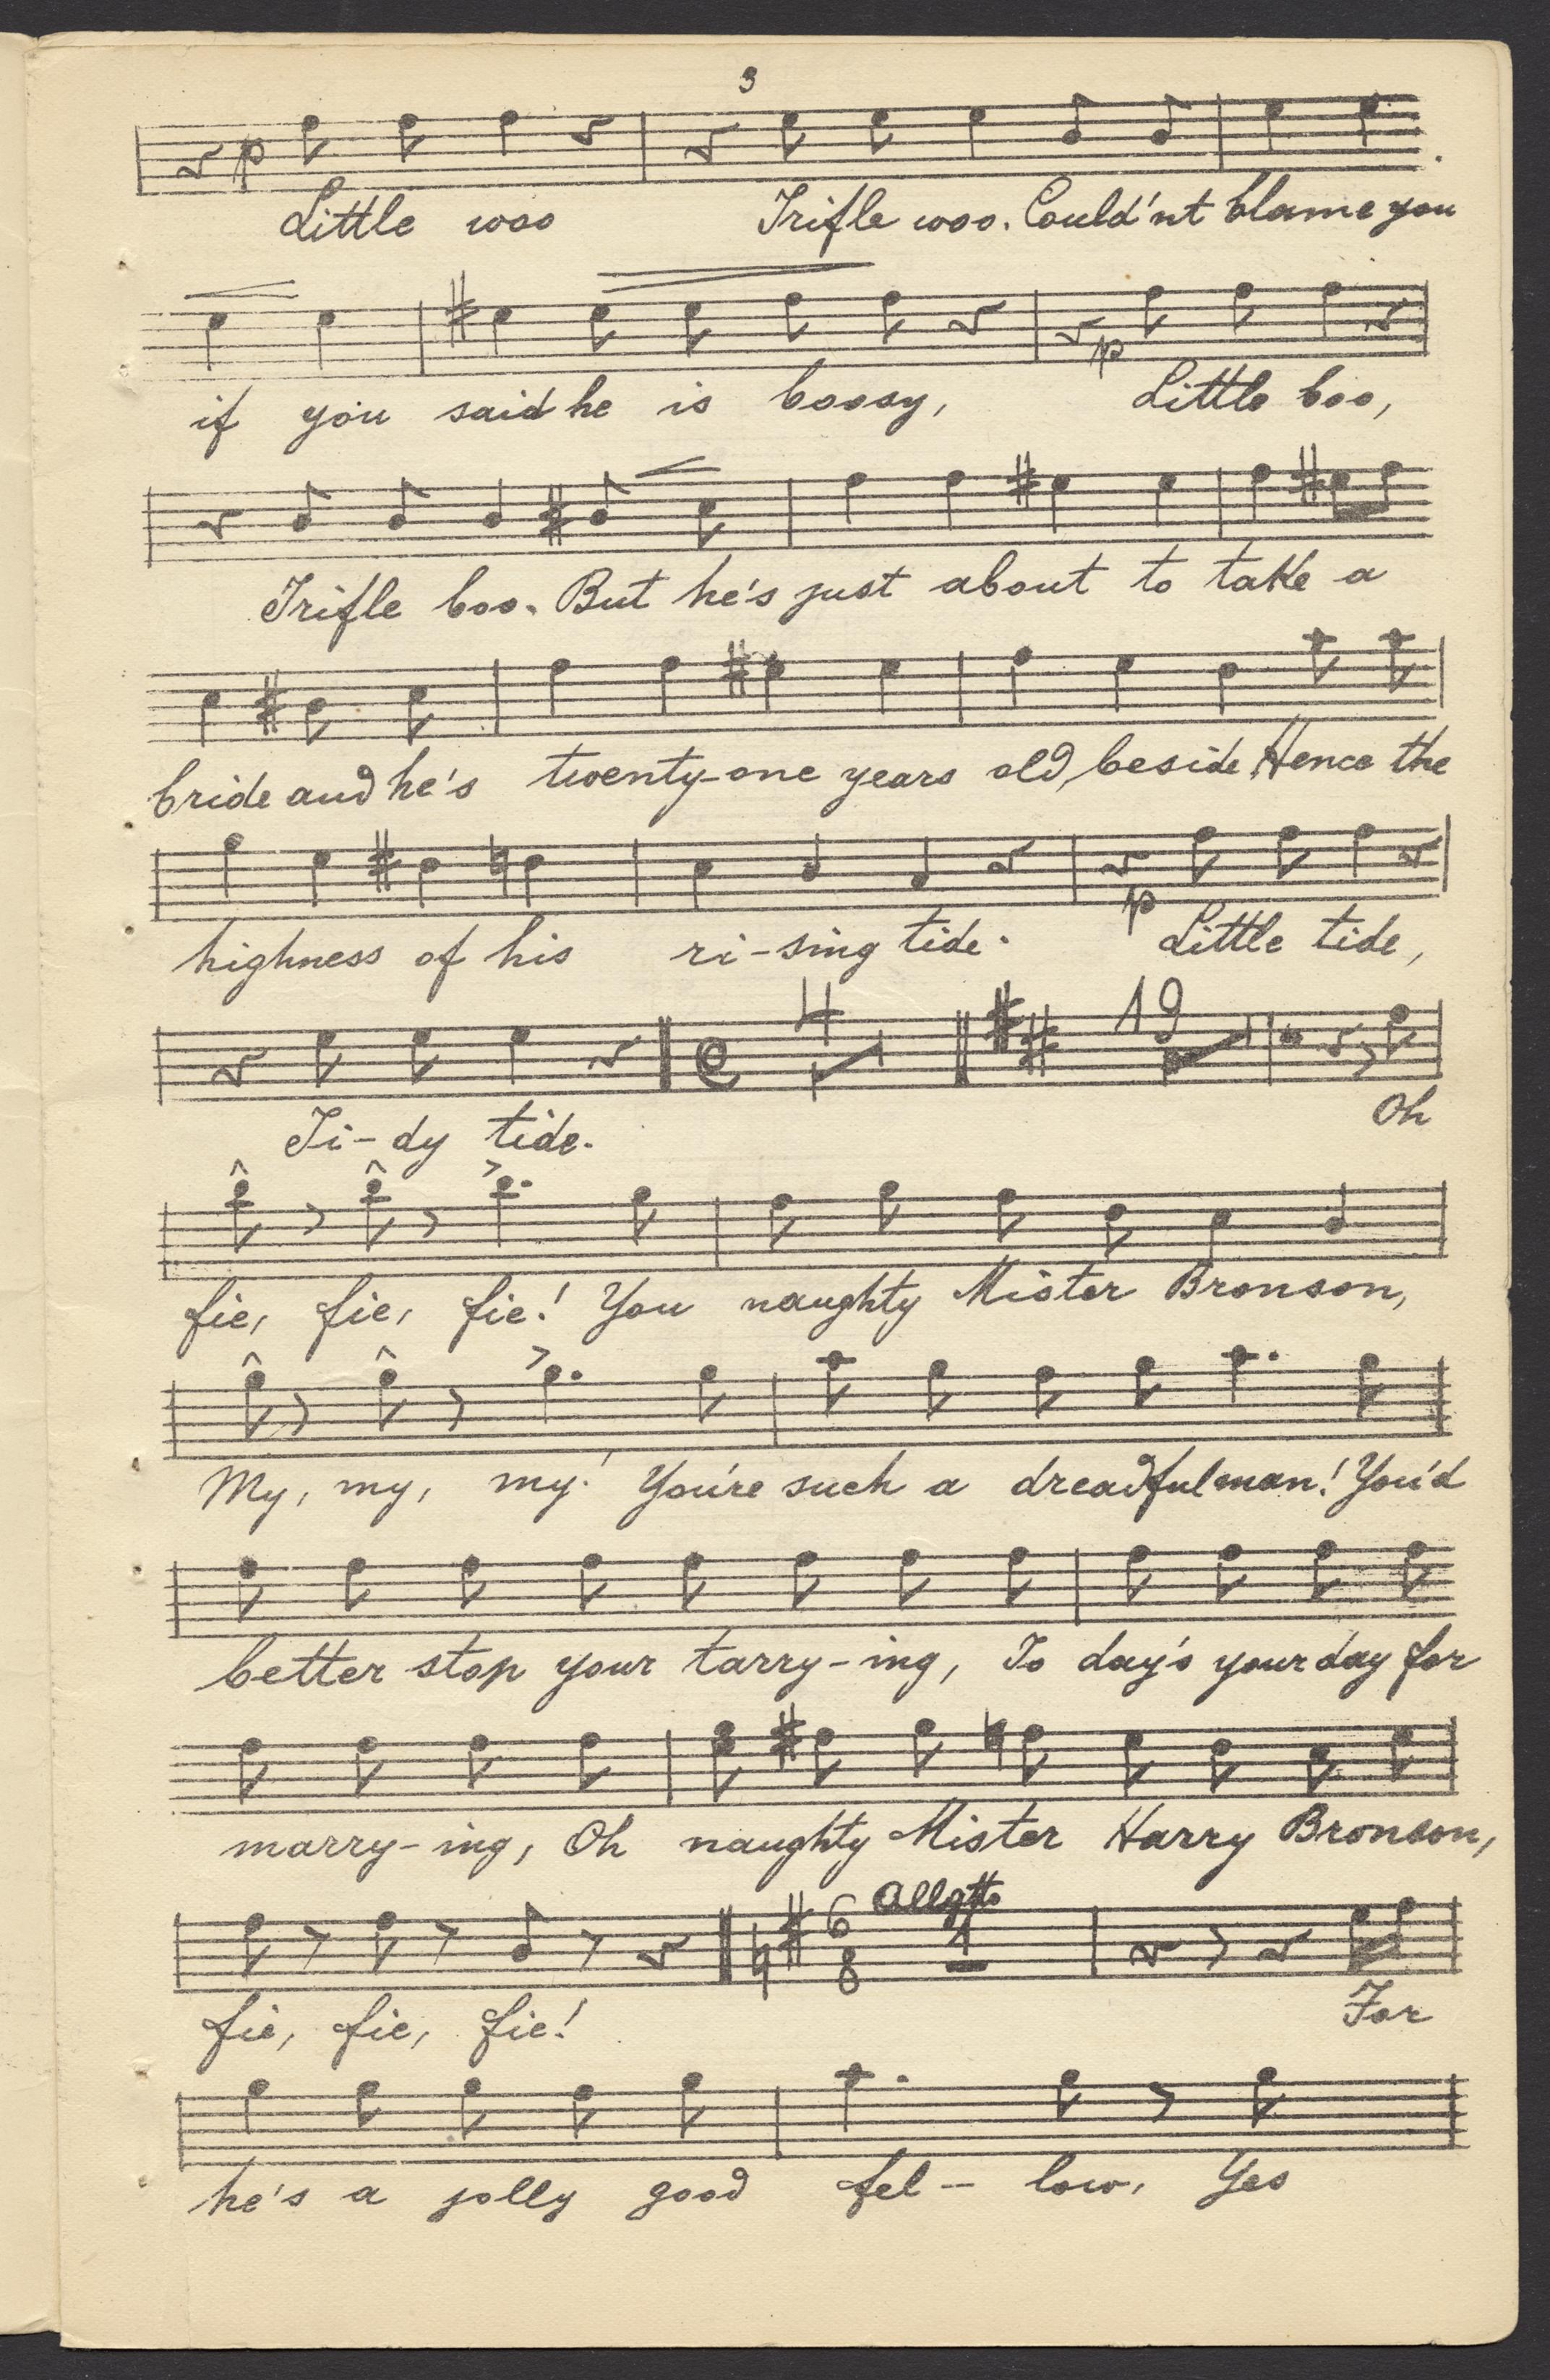 3
p
Little woo Trifle woo. Could'nt blame you
if you said he is boosy, Little boo,
p
Trifle boo. But he's just about to take a
bride and he's twenty-one years old, beside, Hence the
highness of his ri-sing tide. Little tide,
p
4 19
Ti-dy tide. Oh
fie, fie, fie! You naughty Mister Bronson,
My, my, my! You're such a dreadful man! You'd
better stop your tarry-ing, To day's your day for
marry-ing, Oh naughty Mister Harry Bronson,
6 8 Allgtto 1
fie, fie, fie! For
he's a jolly good fel-low, Yes